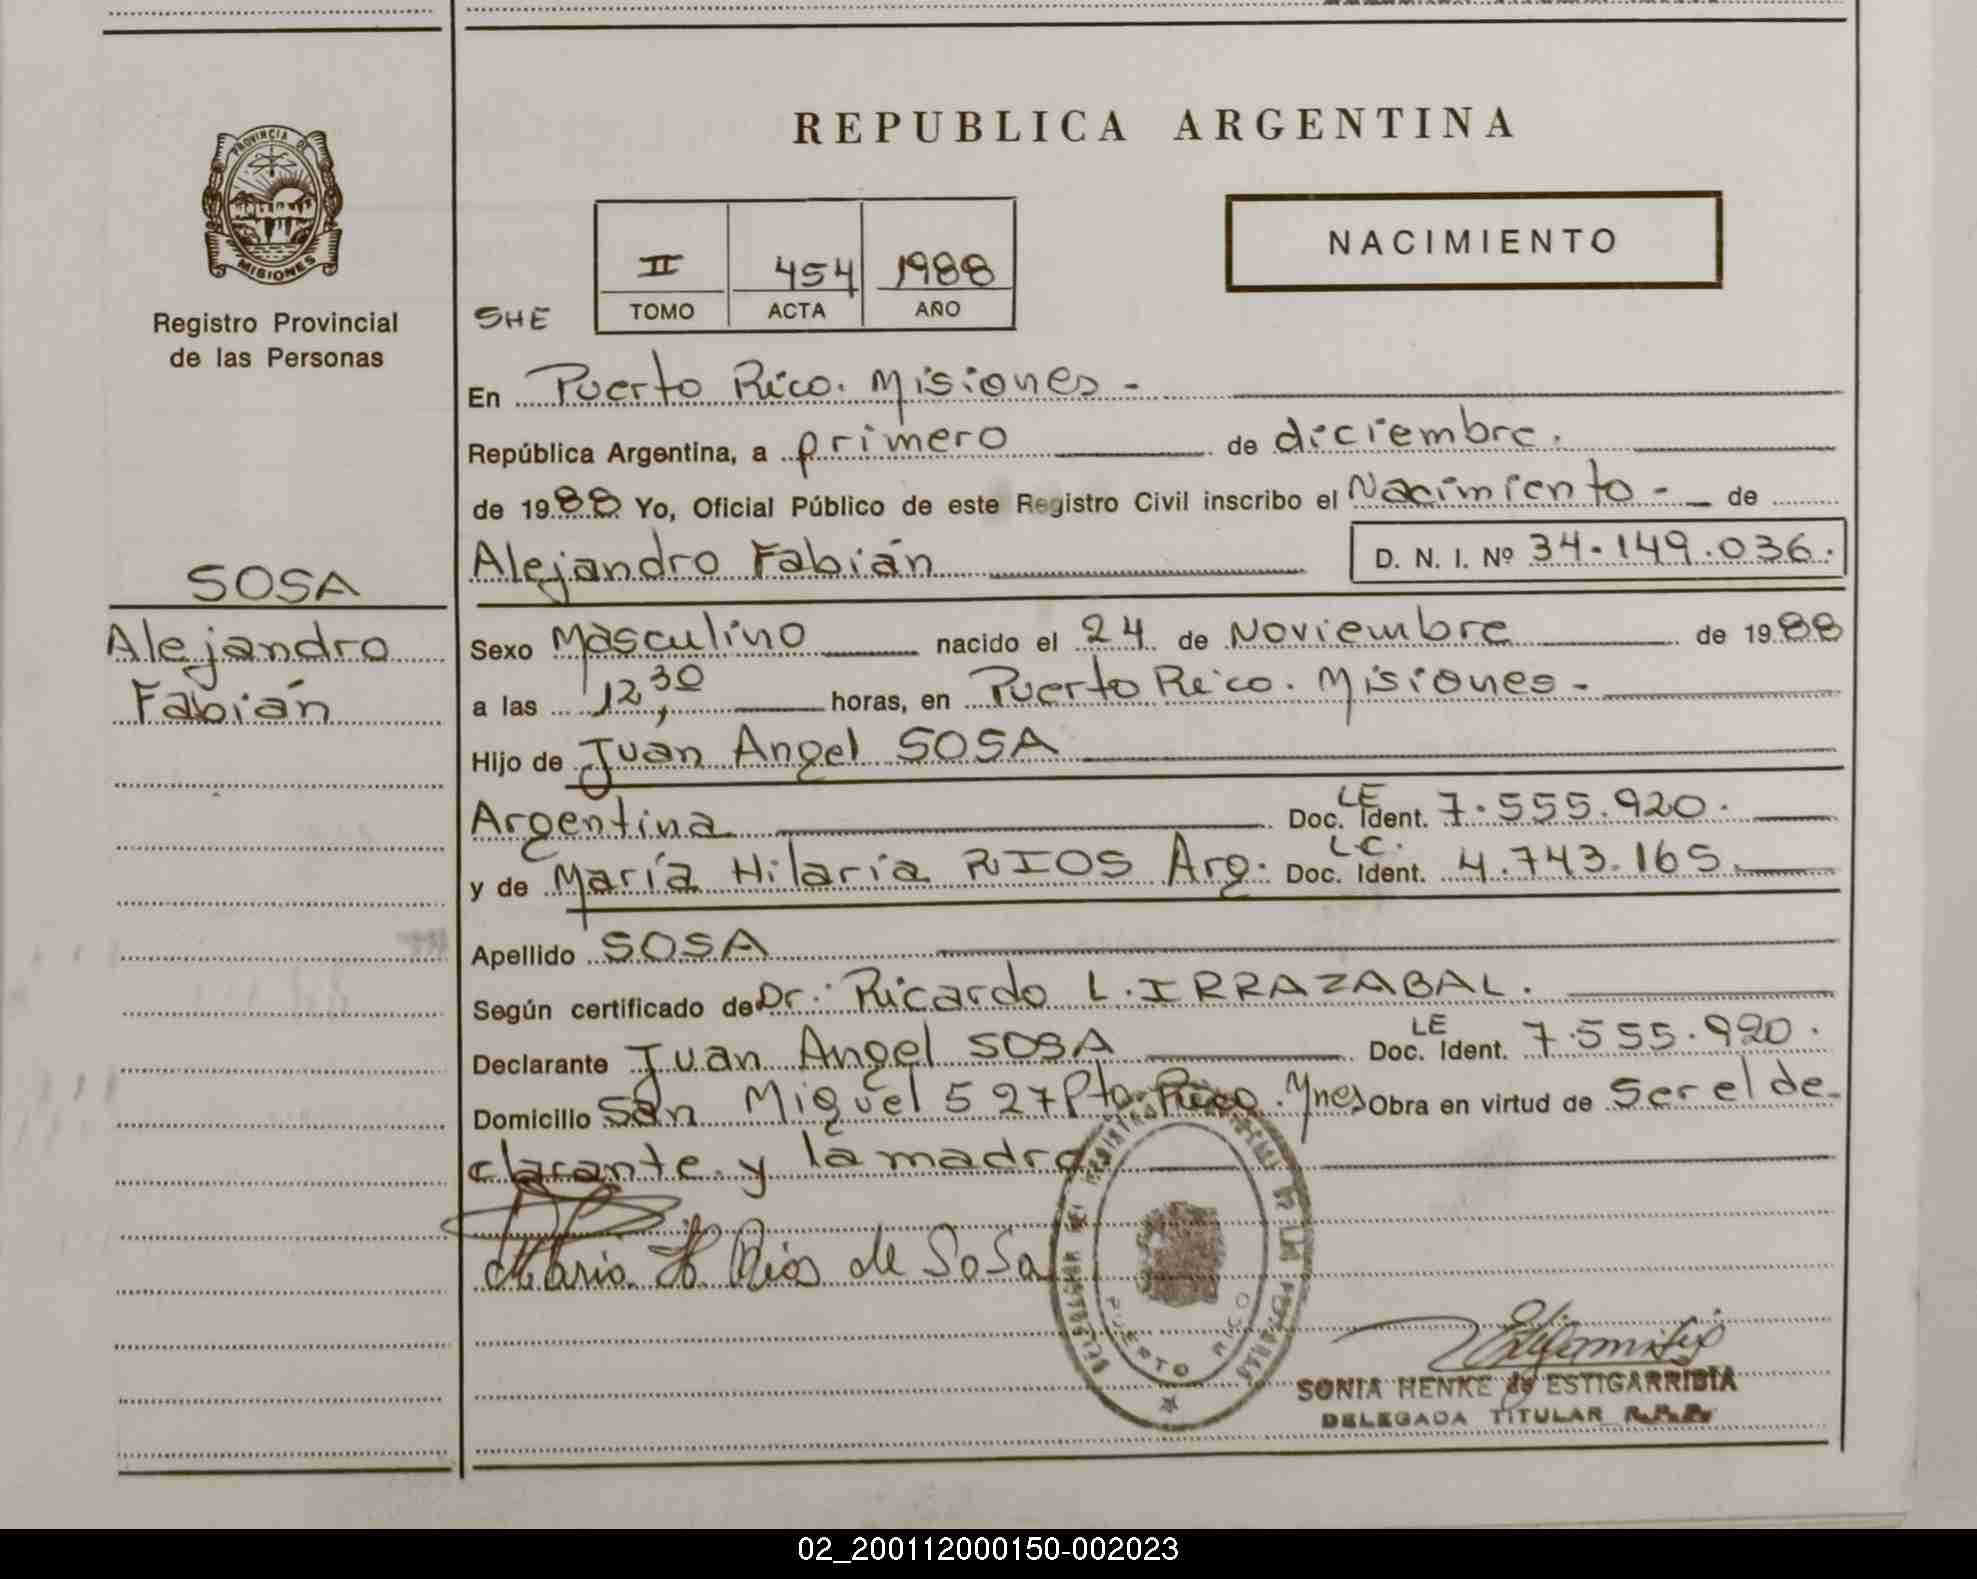 PROVINCIA DE
MISIONES
Registro Provincial
de las Personas
SOSA
Alejandro
Fabián
REPUBLICA ARGENTINA
NACIMIENTO
II 454 1988
TOMO ACTA AÑO
SHE
En Puerto Rico. Misiones -
República Argentina, a primero de diciembre.
de 1988 Yo, Oficial Público de este Registro Civil inscribo el Nacimiento - de
Alejandro Fabián D. N. I. Nº 34.149.036.
Sexo Masculino nacido el 24 de Noviembre de 1988
a las 12,30 horas, en Puerto Rico. Misiones -
Hijo de Juan Angel SOSA
Argentina Doc. LE Ident. 7.555.920.
y de María Hilaria RIOS Arg. Doc. L.C. Ident. 4.743.165.
Apellido SOSA
Según certificado de Dr. Ricardo L. IRRAZABAL.
Declarante Juan Angel SOSA Doc. LE Ident. 7.555.920.
Domicilio San Miguel 527 Pto. Rico. Mnes Obra en virtud de ser el de-
clarante y la madre
Maria H. Rios de Sosa
PUERTO RICO
SONIA HENKE de ESTIGARRIBIA
DELEGADA TITULAR R.P.P.
02_200112000150-002023